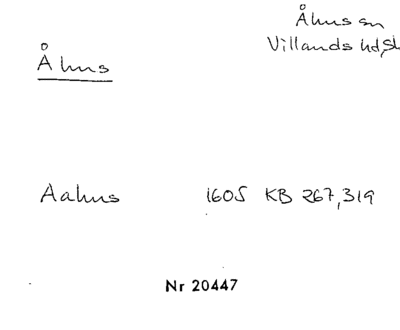 Åhus sn
Villands hd, Sk
Åhus
Aahus 1605 KB 267,319
Nr 20447